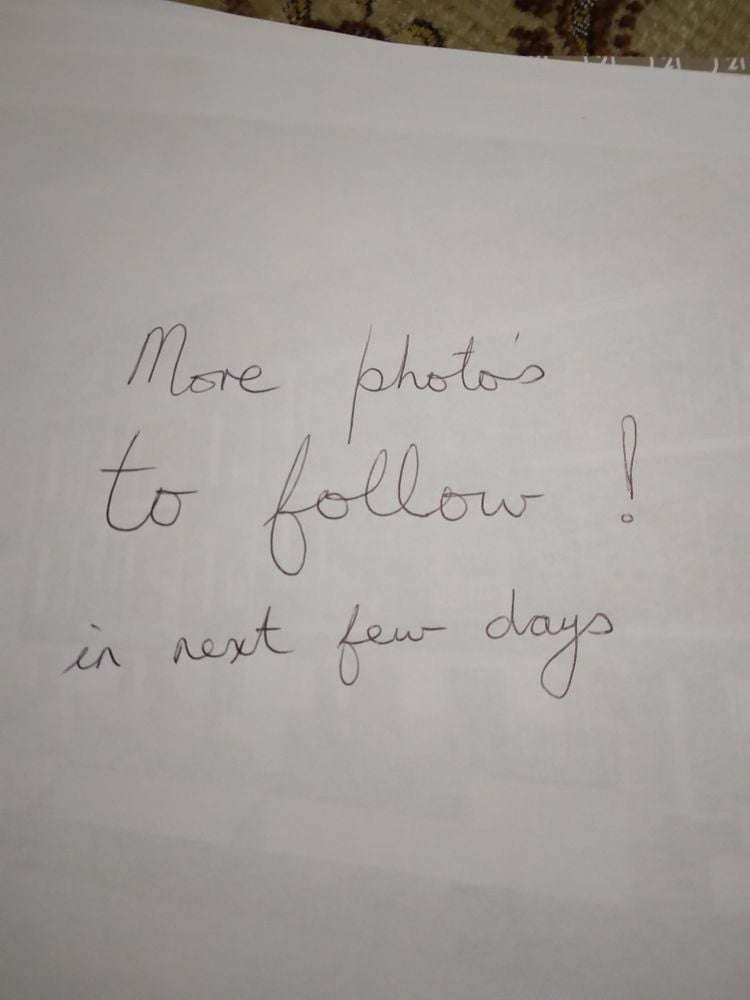 More photo's
to follow !
in next few days